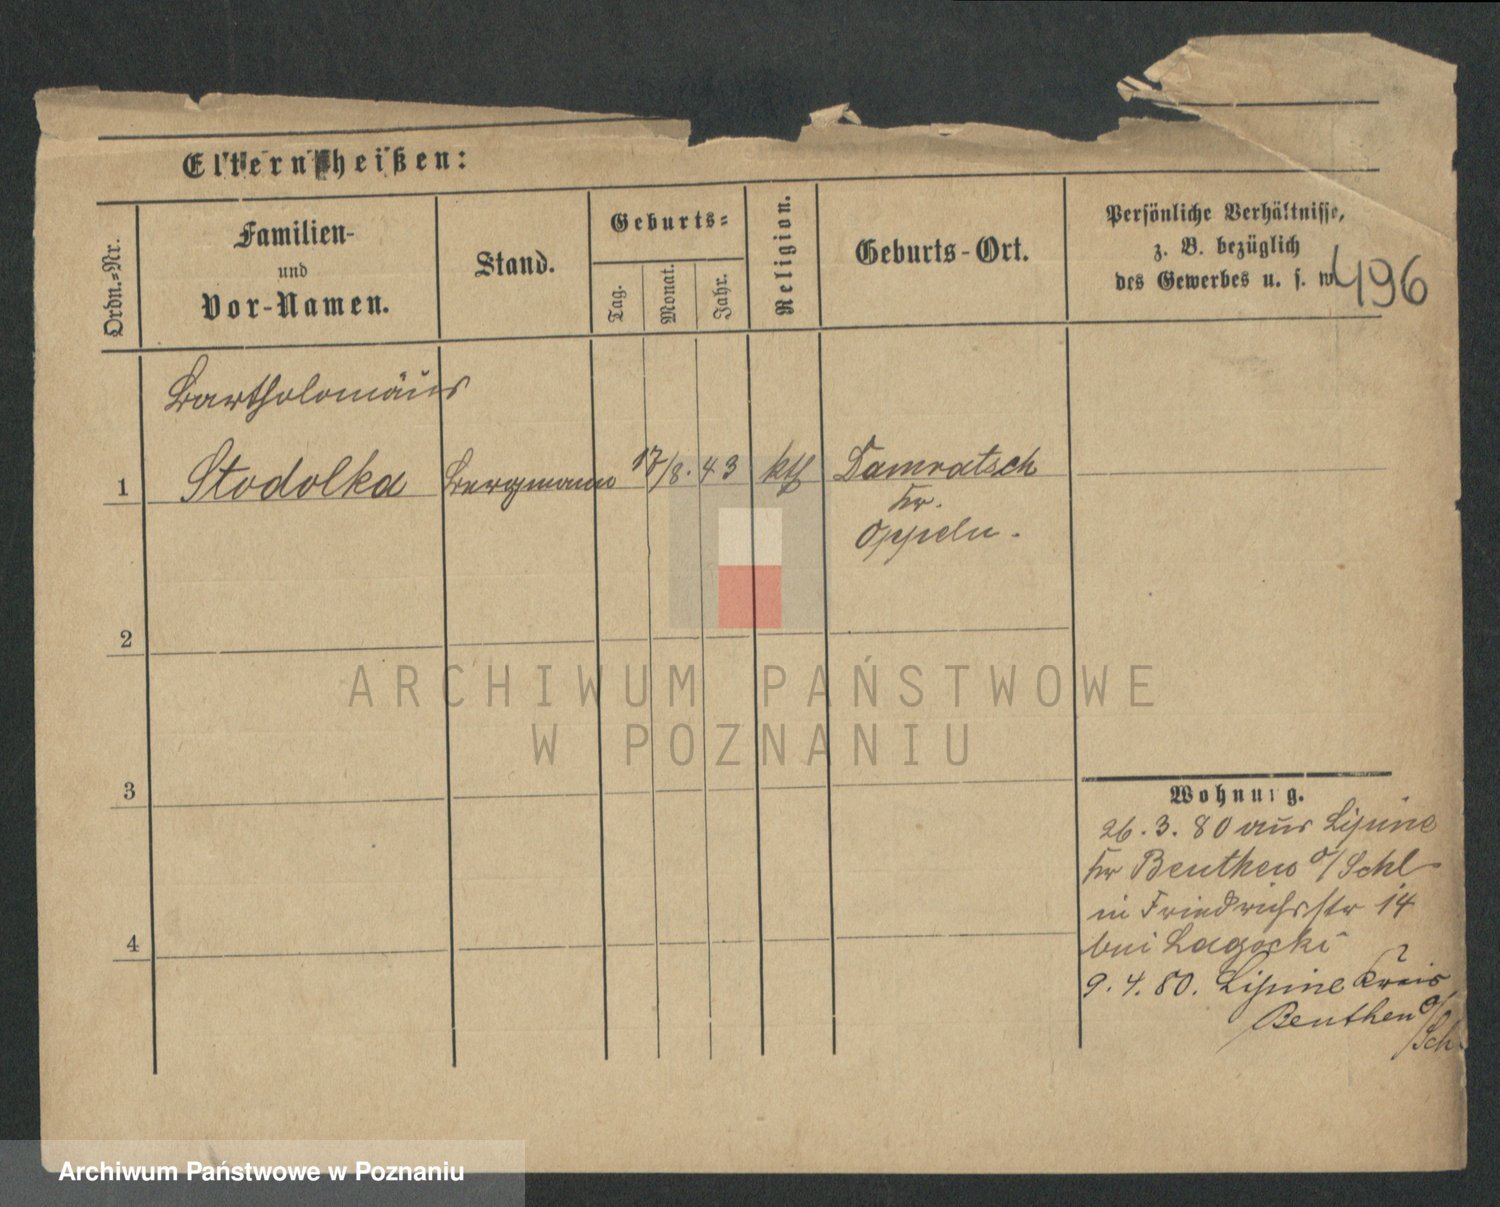 Eltern heißen:
Ordn.-Nr.
Familien-
und
Vor-Namen.
Stand.
Geburts-
Tag.
Monat.
Jahr.
Religion.
Geburts-Ort.
Persönliche Verhältnisse,
z. B. bezüglich
des Gewerbes u. s. w.
496
Bartholomäus
1 Stodolka Bergmann 17/8. 43 kth Damratsch
Kr.
Oppeln.
2
3
4
Wohnung.
26. 3. 80 aus Lipine
Kr Beuthen o/Schl
in Friedrichsstr 14
bei Lagocki
9. 4. 80. Lipine Kreis
Beuthen o/
Sch.
ARCHIWUM PAŃSTWOWE
W POZNANIU
Archiwum Państwowe w Poznaniu